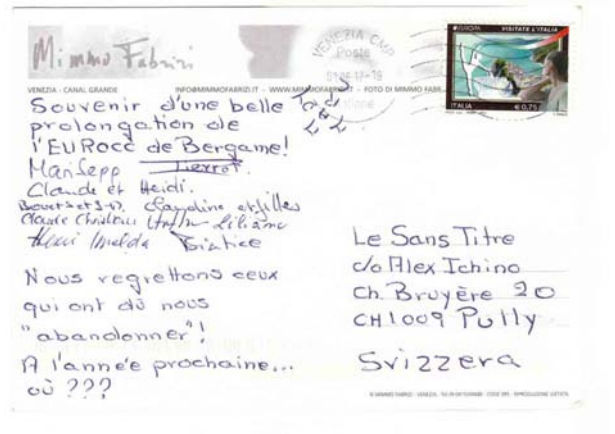 Mimmo Fabrizi
VENEZIA - CANAL GRANDE
INFO@MIMMOFABRIZI.IT - WWW.MIMMOFABRIZI.IT - FOTO DI MIMMO FABR
VENEZIA CMP
Poste
EUROPA VISITATE L'ITALIA
ITALIA €0,75
Souvenir d'une belle
prolongation de
l'EUROCC de Bergame!
Marisepp Pierrot.
Claude et Heidi.
Claudine et Gilles
Claude Christine Liliane
Henri Imelda Béatice
Nous regrettons ceux
qui ont dû nous
"abandonner"!
A l'année prochaine...
où ???
Le Sans Titre
c/o Alex Ichino
Ch. Bruyère 20
CH1009 Pully
Svizzera